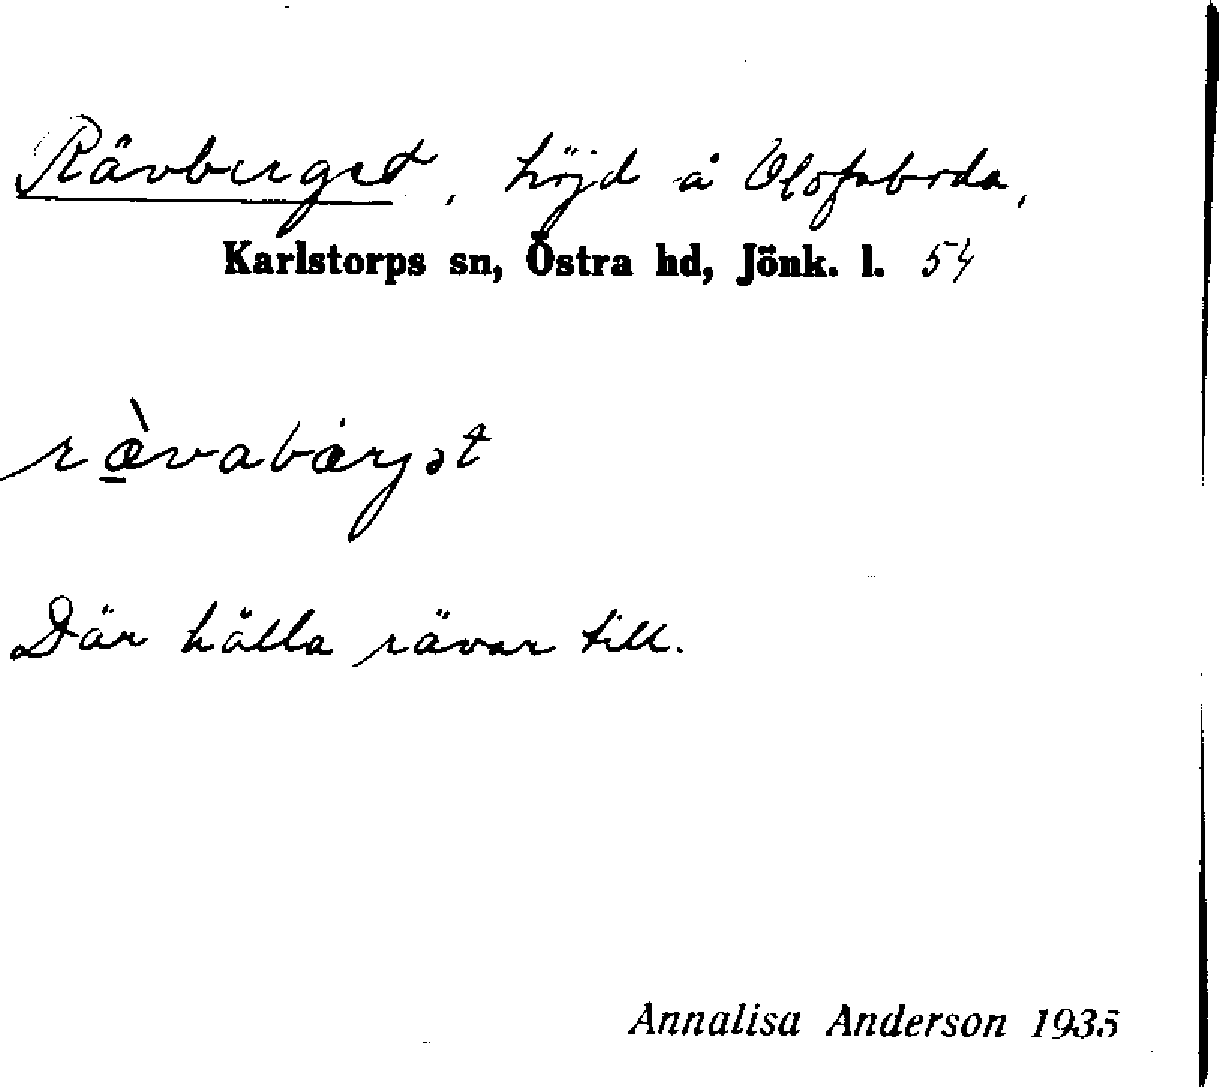 Rävberget, höjd å Olofsboda,
Karlstorps sn, Östra hd, Jönk. l. 54
ræ̀vabárjət
Där hålla rävar till.
Annalisa Anderson 1935